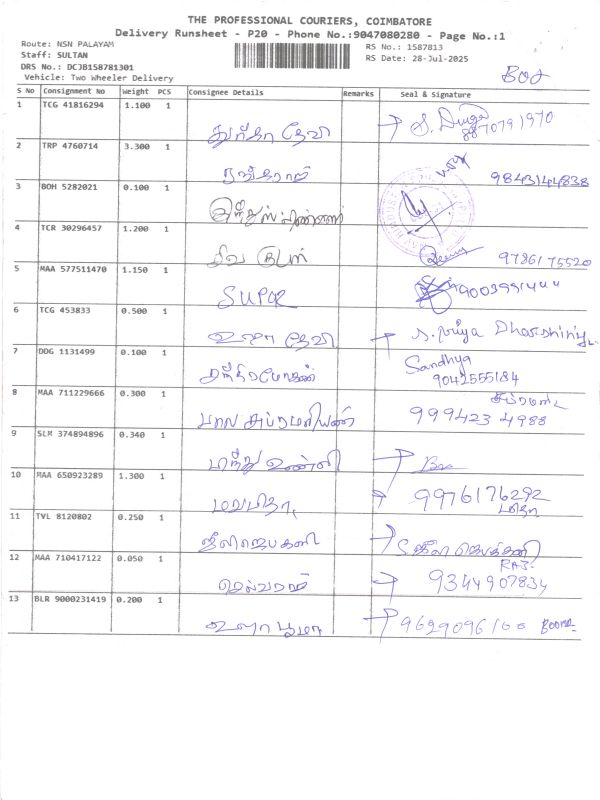 THE PROFESSIONAL COURIERS, COIMBATORE
Delivery Runsheet - P20 - Phone No.:9047080280 - Page No.:1
Route: NSN PALAYAM
Staff: SULTAN
DRS No.: DCJB158781301
Vehicle: Two Wheeler Delivery
RS No.: 1587813
RS Date: 28-Jul-2025
S No Consignment No Weight PCS Consignee Details Remarks Seal & Signature
1 TCG 41816294 1.100 1
துர்கா தேவி S. Durga
8870791970
2 TRP 4760714 3.300 1
ரங்கராஜ் 9843144838
3 BOH 5282021 0.100 1
4 TCR 30296457 1.200 1
9786175520
5 MAA 577511470 1.150 1
SUPER
6 TCG 453833 0.500 1
உஷா தேவி S. Priya Dharshini
7 DDG 1131499 0.100 1
Sandhya
சந்திரமோகன் 9042555184
8 MAA 711229666 0.300 1
பால சுப்ரமணியன் 999423 4988
9 SLM 374894896 0.340 1
10 MAA 650923289 1.300 1
9976176292
11 TVL 8120802 0.250 1
12 MAA 710417122 0.050 1
RAJ
செல்வராஜ் 9344907834
13 BLR 9000231419 0.200 1
9629096100